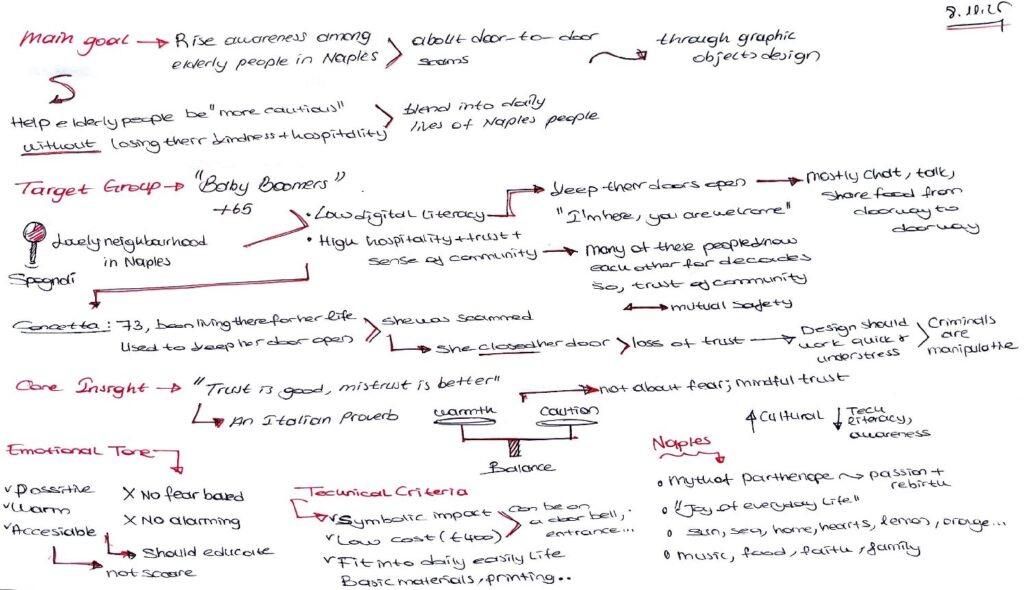 8.10.25
Main goal → Rise awareness among
elderly people in Naples
about door-to-door
scams
through graphic
objects design
Help elderly people be "more cautious"
without losing their kindness + hospitality
blend into daily
lives of Naples people
Target Group → "Baby Boomers"
+65
Lovely neighbourhood
in Naples
Spagnoli
• Low digital literacy
• High hospitality + trust +
sense of community
keep their doors open
"I'm here, you are welcome"
mostly chat, talk,
share food from
doorway to
doorway
many of these people know
each other for decades
so, trust of community
↔ mutual safety
Concetta: 73, been living there for her life
Used to keep her door open
she was scammed
She closed her door > loss of trust
Design should
work quick &
understress
Criminals
are
manipulative
Core Insight → "Trust is good, mistrust is better"
An Italian Proverb
not about fear; mindful trust
warmth
caution
Balance
↑ Cultural
↓ Tech
literacy,
awareness
Emotional Tone
✓ Possitive
✓ Warm
✓ Accesiable
X No fear based
X No alarming
Should educate
not scare
Technical Criteria
✓ Symbolic impact
✓ Low cost (€400)
can be on
a door bell,
entrance...
✓ Fit into daily easily life
Basic materials, printing..
Naples
• myth of parthenope → passion +
rebirth
• "Joy of everyday life"
• sun, sea, home, hearts, lemon, orange...
• music, food, faith, family